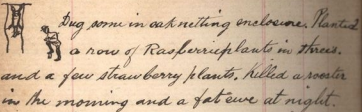 Dug some in oak netting enclosure. Planted
a row of Rasberrieplants in threes.
and a few strawberry plants. Killed a rooster
in the morning and a fat ewe at night.